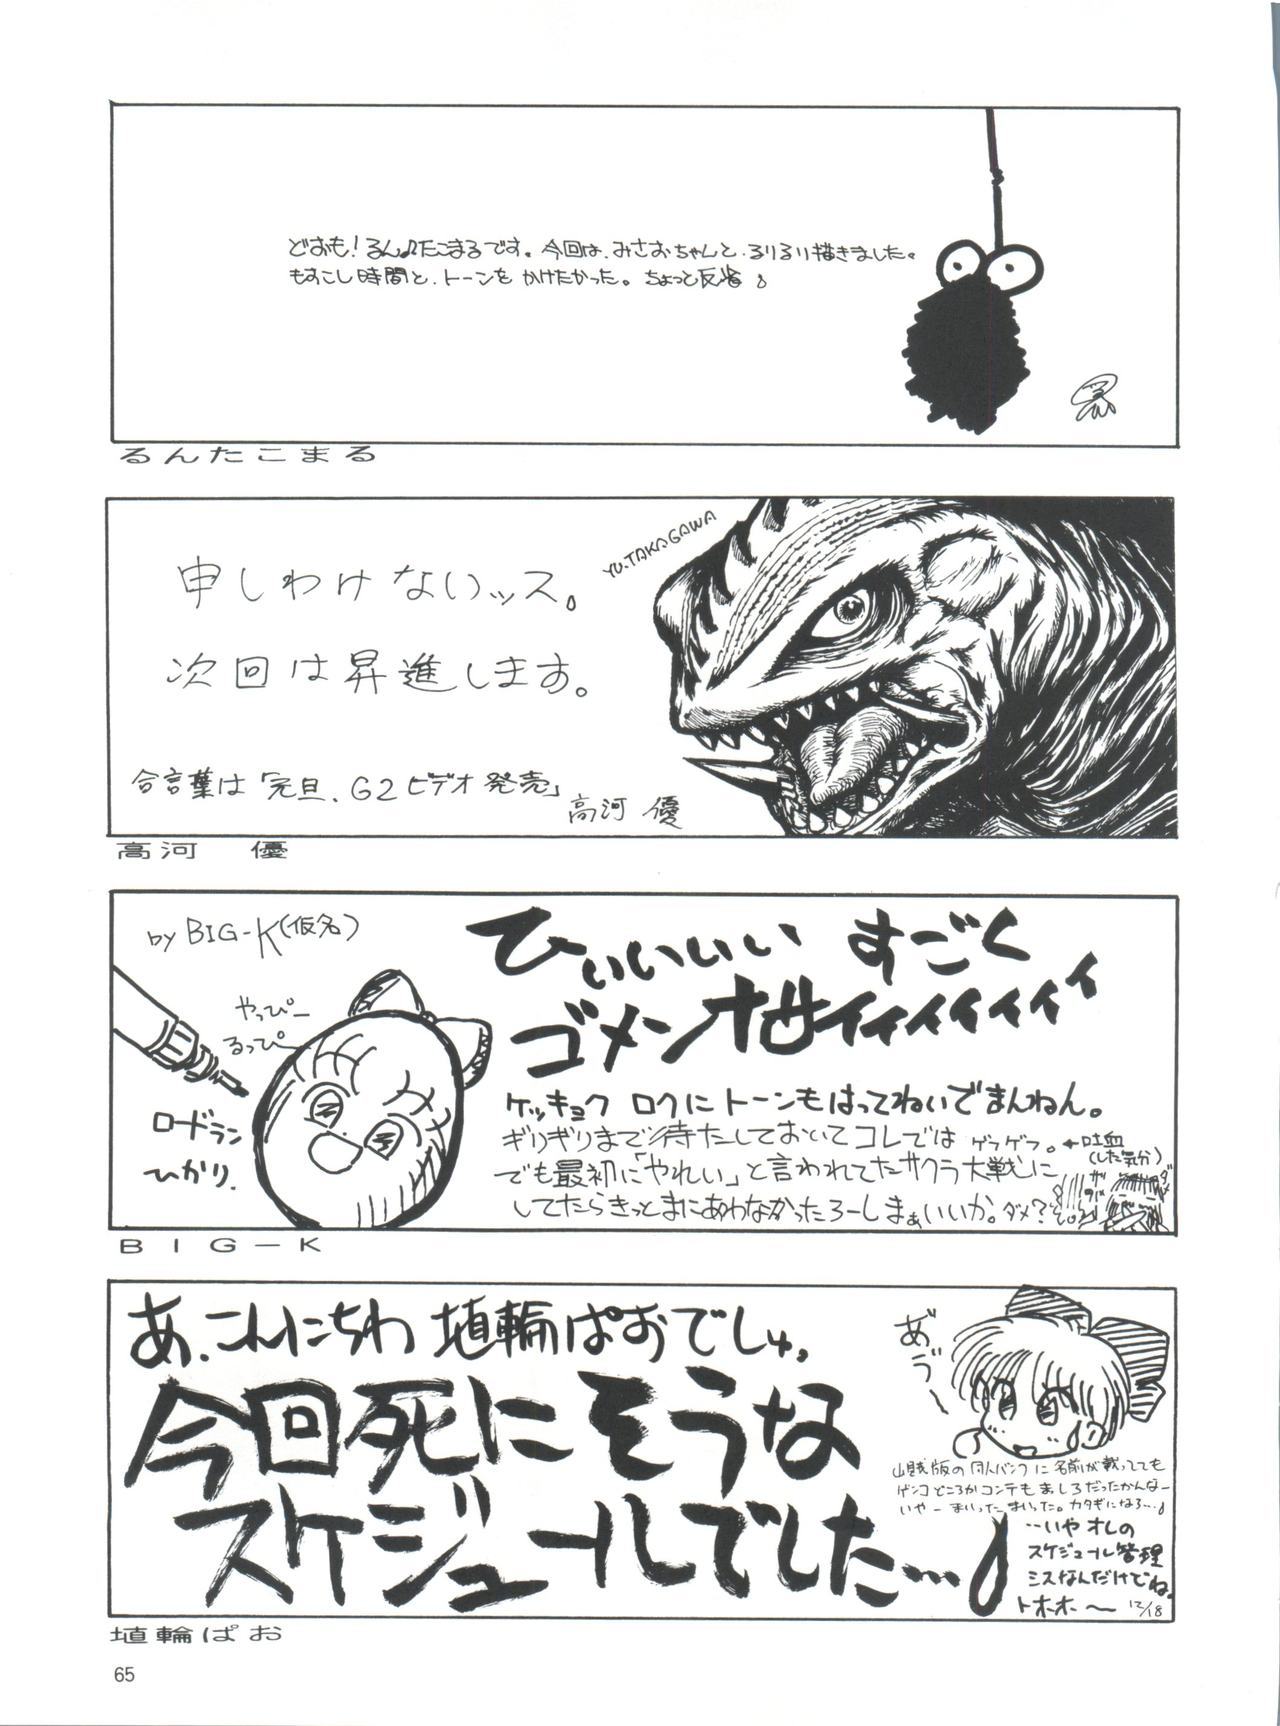 どおも！るん♪たこまるです。今回は、みさおちゃんと、るりるり描きました。
もすこし時間と、トーンを かけたかった。ちょっと反省
るんたこまる
YU.TAKAGAWA
申しわけないッス。
次回は昇進します。
合言葉は「元旦、G2ビデオ発売」
高河 優
高河 優
by BIG-K(仮名)
ひぃぃぃぃぃ すごく
ゴメンナサイィィィィィィィ
やっぴー
るっぴー
ロードラン
ひかり.
ケッキョク ロクにトーンもはってねいでまんねん。
ギリギリまで待たしておいてコレでは ゲフゲフ。←吐血(した気分)
でも最初に「やれい」と言われてたサクラ大戦に
してたらきっとまにあわなかったろーしまぁいいか。ダメ？
BIG-K
あ、こんにちわ 埴輪ぱおでしゅ、
今回死にそうな
スケジュールでした…
あづー
山賊版の同人バンクに名前が載ってても
ゲンコどころかコンテもましろだったかんなー
いやー まいった まいった。カタギになろ…
…いや オレの
スケジュール管理
ミスなんだけどね。
トホホ～ 12/18
埴輪ぱお
65